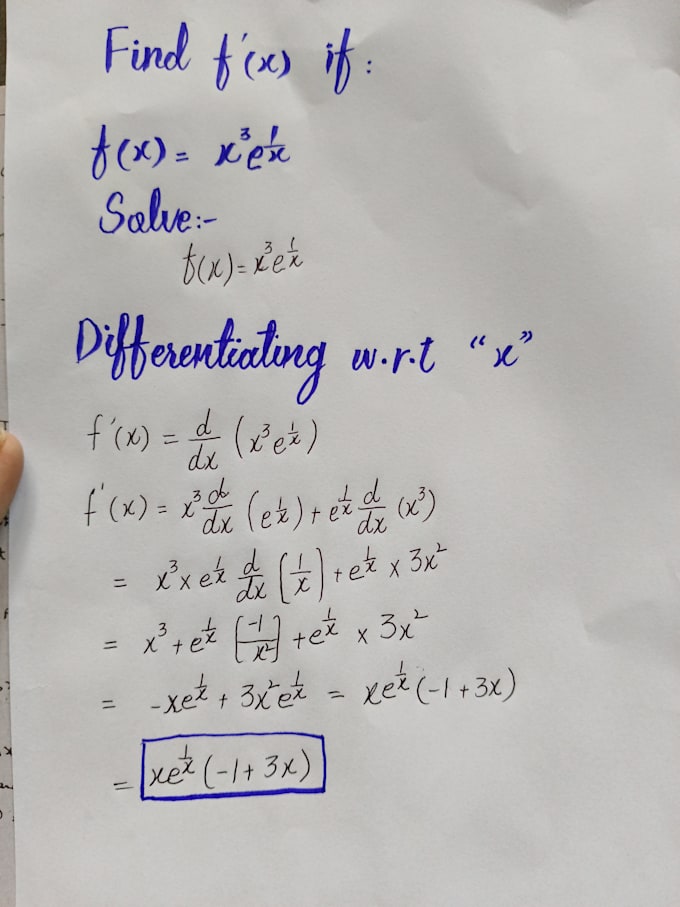 Find f'(x) if :
f(x) = x³e^(1/x)
Solve:-
f(x) = x³e^(1/x)
Differentiating w.r.t “x”
f'(x) = d/dx (x³e^(1/x))
f'(x) = x³ d/dx (e^(1/x)) + e^(1/x) d/dx (x³)
= x³ × e^(1/x) d/dx [1/x] + e^(1/x) × 3x²
= x³ + e^(1/x) [-1/x²] + e^(1/x) × 3x²
= -xe^(1/x) + 3x²e^(1/x) = xe^(1/x) (-1 + 3x)
= xe^(1/x) (-1 + 3x)